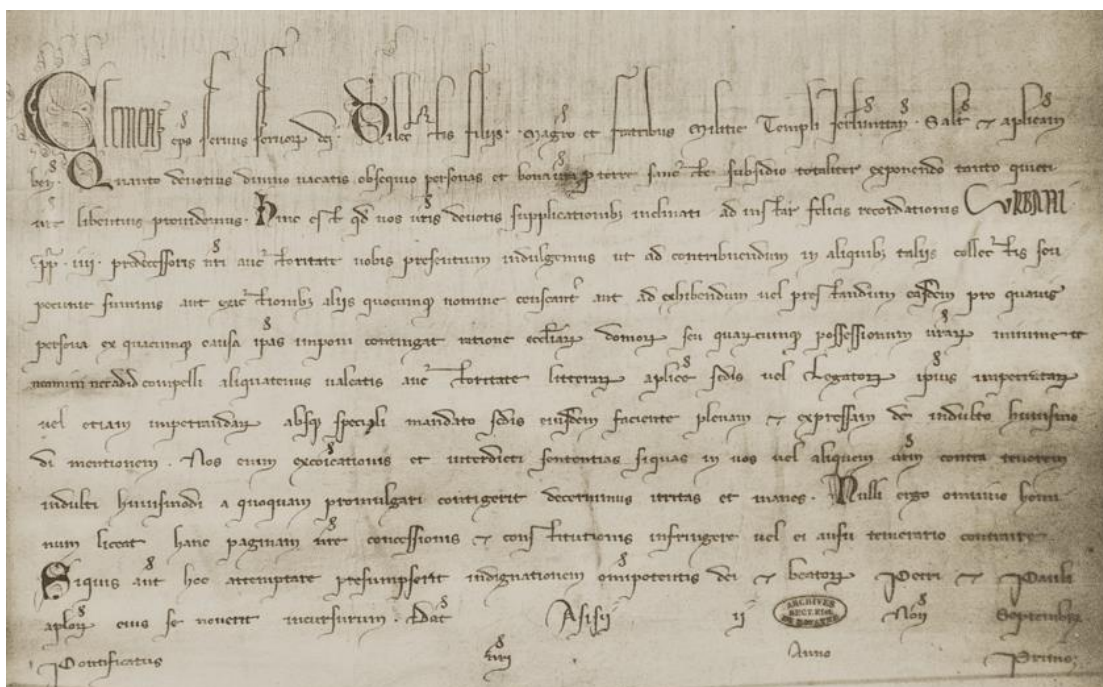 Clemens eps seruus seruoꝝ dei. Dilectis filijs. Magro et fratribus Militie Templi Jerlimitan Salt et aplicam
ben. Quanto deuotius diuino uacatis obsequio personas et bona ura pro terre sancte subsidio totaliter exponendo tanto quieti
ure libentius prouidemus. Hinc est qd nos uris deuotis supplicationibꝫ inclinati ad instar felicis recordationis URBANI
pp. iiii. predecessoris nri auctoritate uobis presentium indulgemus ut ad contribuendum in aliquibꝫ talijs collectis seu
pecunie summis aut exactionibꝫ alijs quocumqꝫ nomine censeant aut ad exhibendum uel prestandum easdem pro quauis
persona ex quacumqꝫ causa ipas imponi contingat ratione eccliaꝝ domoꝝ seu quarumcumqꝫ possessionum uraꝝ minime te
neamini nec ad id compelli aliquatenus ualeatis auctoritate litteraꝝ aplice sedis uel legatoꝝ ipius impetrataꝝ
uel etiam impetrandaꝝ absqꝫ speciali mandato sedis eiusdem faciente plenam et expressam de indulto huiusmo
di mentionem. Nos enim excoicationis et interdicti sententias siquas in uos uel aliquem urm contra tenorem
indulti huiusmodi a quoquam promulgari contigerit decernimus irritas et inanes. Nulli ergo omnino homi
num liceat hanc paginam nre concessionis et constitutionis infringere uel ei ausu temerario contraire.
Siquis aut hoc attemptare presumpserit indignationem omipotentis dei et beatoꝝ Petri et Pauli
aploꝝ eius se nouerit incursurum. Dat Asisij ij ARCHIVES Non Septembr
Pontificatus nri Anno Primo